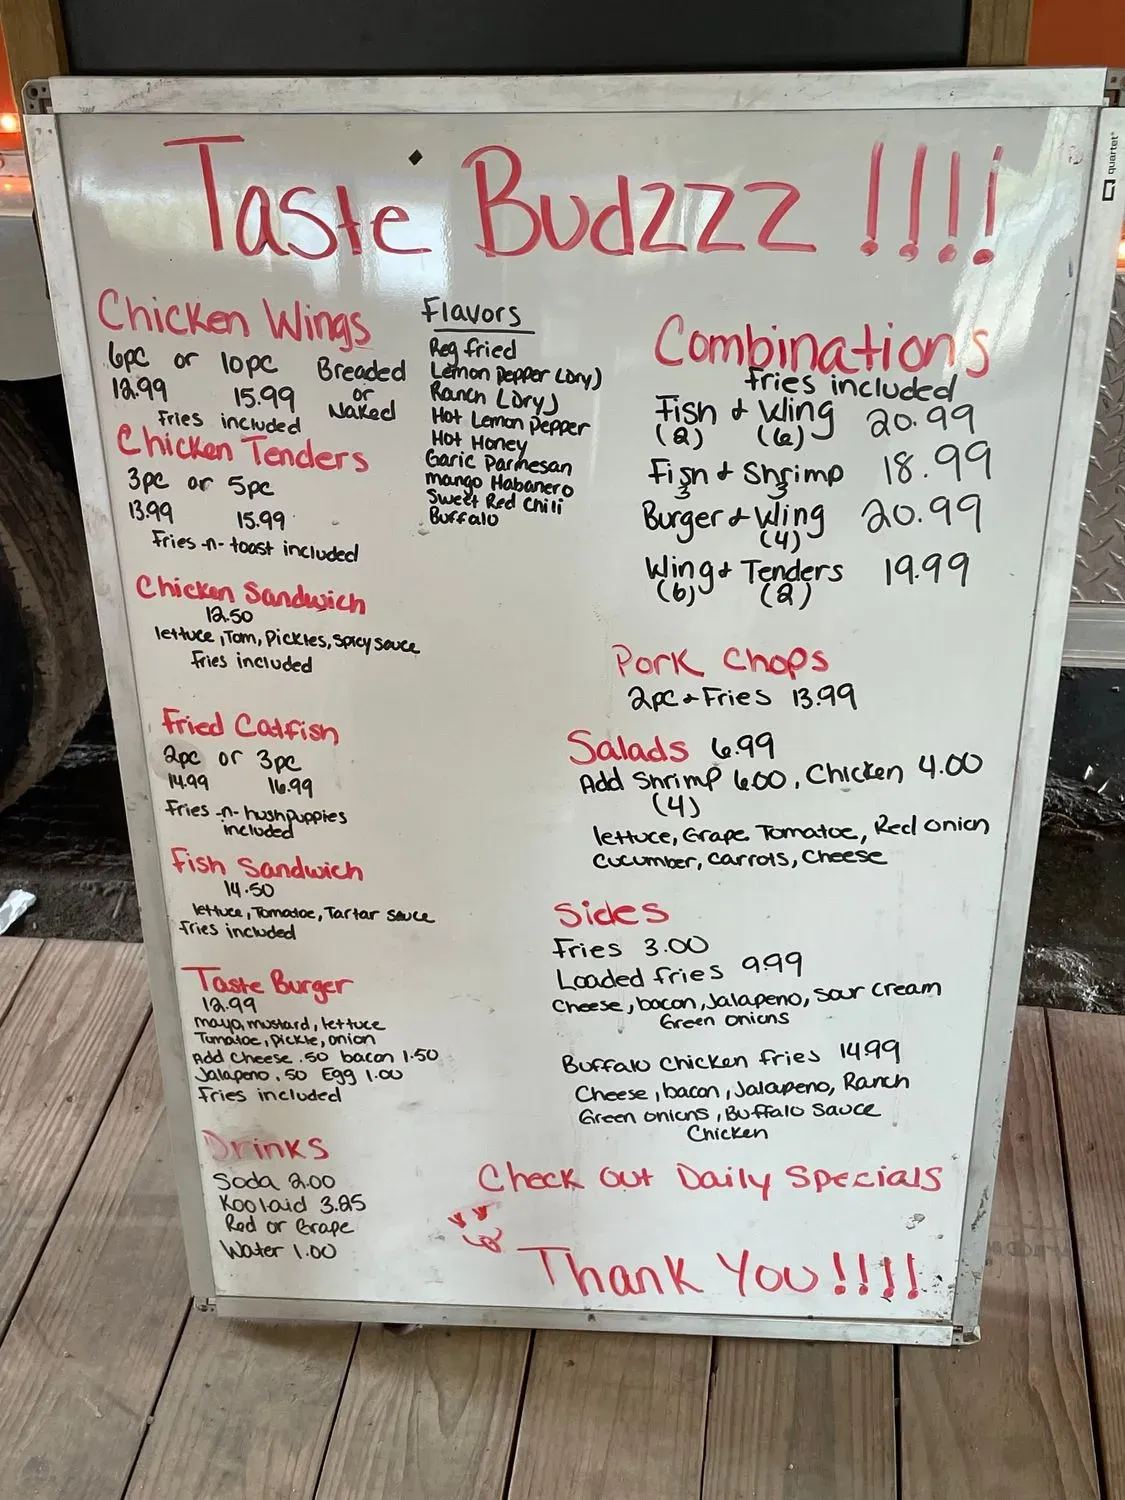 quartet
Taste Budzzz !!!!
Chicken Wings
6pc or 10pc Breaded
12.99 15.99 or
Naked
Fries included
Chicken Tenders
3pc or 5pc
13.99 15.99
Fries -n- toast included
Chicken Sandwich
12.50
lettuce, Tom, Pickles, Spicy sauce
Fries included
Fried Catfish
2pc or 3pc
14.99 16.99
Fries -n- hushpuppies
included
Fish Sandwich
14.50
lettuce, Tomatoe, Tartar sauce
Fries included
Taste Burger
12.99
mayo, mustard, lettuce
Tomatoe, pickle, onion
Add Cheese .50 bacon 1.50
Jalapeno .50 Egg 1.00
Fries included
Drinks
Soda 2.00
Koolaid 3.25
Red or Grape
Water 1.00
Flavors
Reg fried
Lemon pepper (Dry)
Ranch (Dry)
Hot Lemon Pepper
Hot Honey
Garic Parmesan
mango Habanero
Sweet Red Chili
Buffalo
Combinations
fries included
Fish + Wling 20.99
(2) (6)
Fish + Shrimp 18.99
3 3
Burger + Wing 20.99
(4)
Wing + Tenders 19.99
(6) (2)
Pork Chops
2pc + Fries 13.99
Salads 6.99
Add Shrimp 6.00, Chicken 4.00
(4)
lettuce, Grape Tomatoe, Red onion
cucumber, carrots, Cheese
Sides
Fries 3.00
Loaded fries 9.99
Cheese, bacon, Jalapeno, Sour cream
Green onions
Buffalo Chicken fries 14.99
Cheese, bacon, Jalapeno, Ranch
Green onions, Buffalo Sauce
Chicken
Check Out Daily Specials
Thank You !!!!